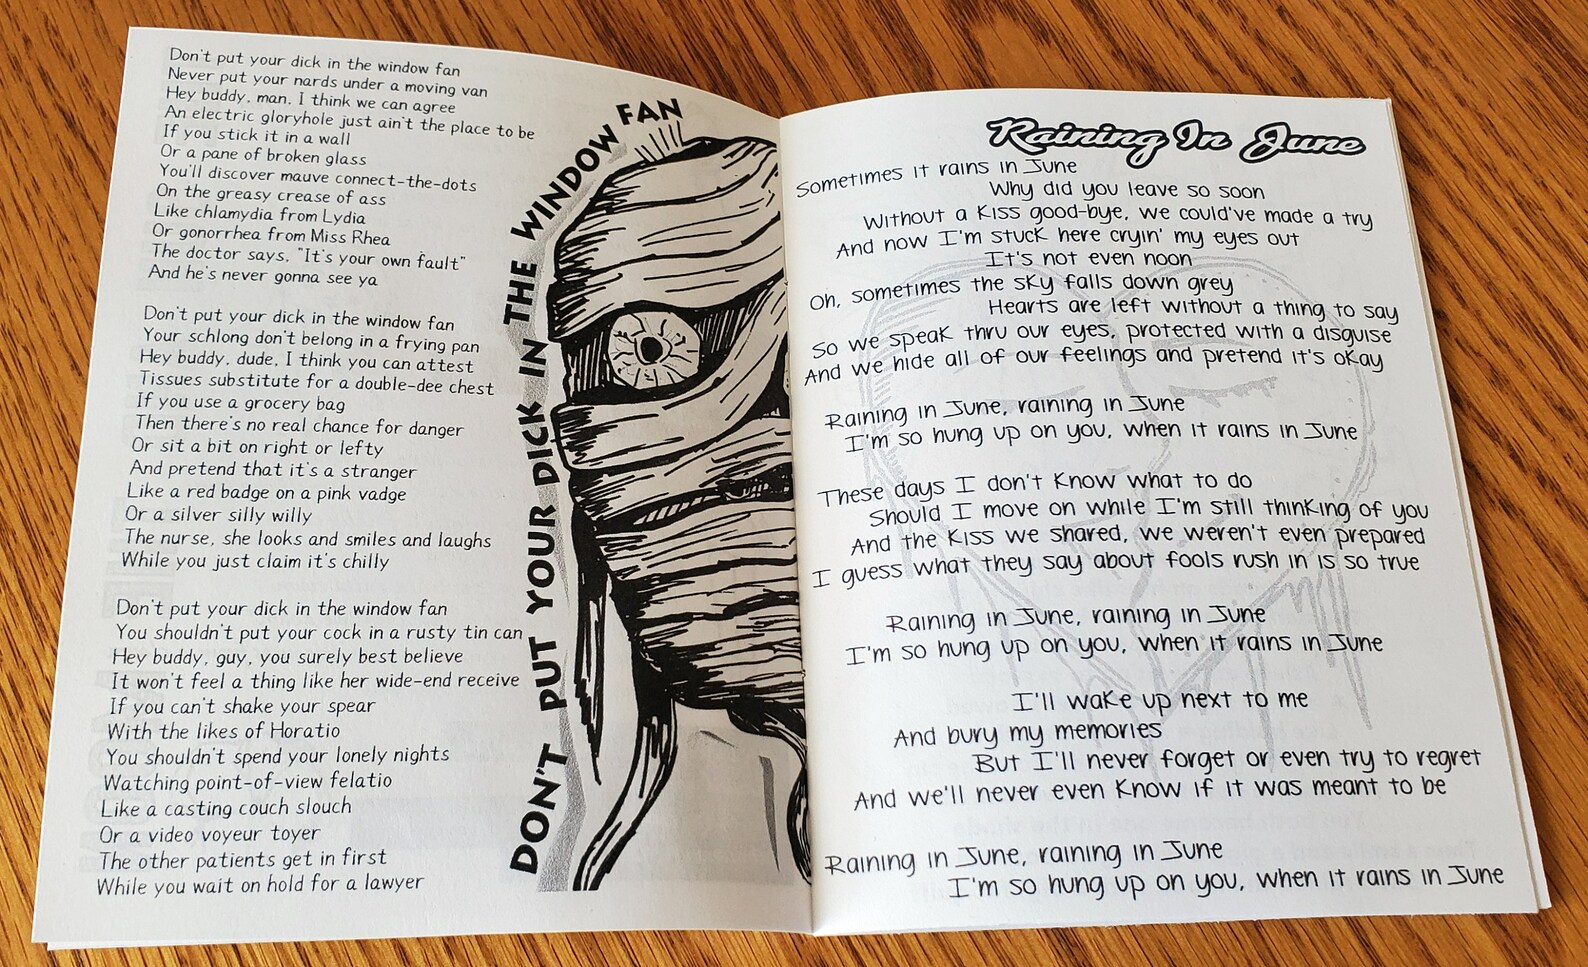 Don't put your dick in the window fan
Never put your nards under a moving van
Hey buddy, man, I think we can agree
An electric gloryhole just ain't the place to be
If you stick it in a wall
Or a pane of broken glass
You'll discover mauve connect-the-dots
On the greasy crease of ass
Like chlamydia from Lydia
Or gonorrhea from Miss Rhea
The doctor says, "It's your own fault"
And he's never gonna see ya
Don't put your dick in the window fan
Your schlong don't belong in a frying pan
Hey buddy, dude, I think you can attest
Tissues substitute for a double-dee chest
If you use a grocery bag
Then there's no real chance for danger
Or sit a bit on right or lefty
And pretend that it's a stranger
Like a red badge on a pink vadge
Or a silver silly willy
The nurse, she looks and smiles and laughs
While you just claim it's chilly
Don't put your dick in the window fan
You shouldn't put your cock in a rusty tin can
Hey buddy, guy, you surely best believe
It won't feel a thing like her wide-end receive
If you can't shake your spear
With the likes of Horatio
You shouldn't spend your lonely nights
Watching point-of-view felatio
Like a casting couch slouch
Or a video voyeur toyer
The other patients get in first
While you wait on hold for a lawyer
DON'T PUT YOUR DICK IN THE WINDOW FAN
Raining In June
Sometimes it rains in June
Why did you leave so soon
Without a kiss good-bye, we could've made a try
And now I'm stuck here cryin' my eyes out
It's not even noon
Oh, sometimes the sky falls down grey
Hearts are left without a thing to say
So we speak thru our eyes, protected with a disguise
And we hide all of our feelings and pretend it's okay
Raining in June, raining in June
I'm so hung up on you, when it rains in June
These days I don't know what to do
Should I move on while I'm still thinking of you
And the kiss we shared, we weren't even prepared
I guess what they say about fools rush in is so true
Raining in June, raining in June
I'm so hung up on you, when it rains in June
I'll wake up next to me
And bury my memories
But I'll never forget or even try to regret
And we'll never even know if it was meant to be
Raining in June, raining in June
I'm so hung up on you, when it rains in June